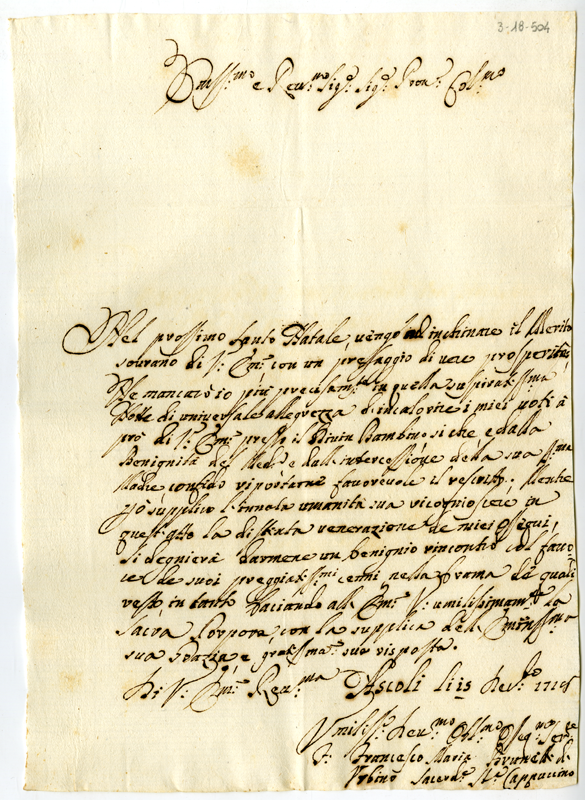 3-18-504
Em.ss:mo e Reu:mo Sig:r Sig:r Pron: Col:mo
Nel prossimo Santo Natale, uengo ad inchinare il Merito
sourano di V: Em: con un pressaggio di uere prosperità,
Ne mancarò io più precisam:te in quella suspiratiss:ma
Notte di uniuersale allegrezza d'incalorire i miei uoti à
prò di V: Em: presso il Diuin Bambino, si che e dalla
Benignità del Med:o e dall'intercessione della sua SS:ma
Madre confido riportarne fauoreuole il rescritto. Mentre
Io supplico l'innata umanità sua riconoscere in
quest'atto la distinta uenerazione de miei Ossequi,
si degnierà darmene un benignio rincontro col fauo=
re de suoi preggiatiss:mi cenni nella brama de quali
resto in tanto baciando all' Em: V: umilissimam:te la
Sacra Porpora, con la supplica dell' Eminss:ma
sua Grazia, e gratissma: sua risposta.
Di V: Em: Reu:ma Ascoli li 15 Xbr:e
Vmiliss: Deu:mo Obl:mo Osseq:mo Ser:re
F: Francesco Maria di
Vrbino Sacerd:e Cappuccino